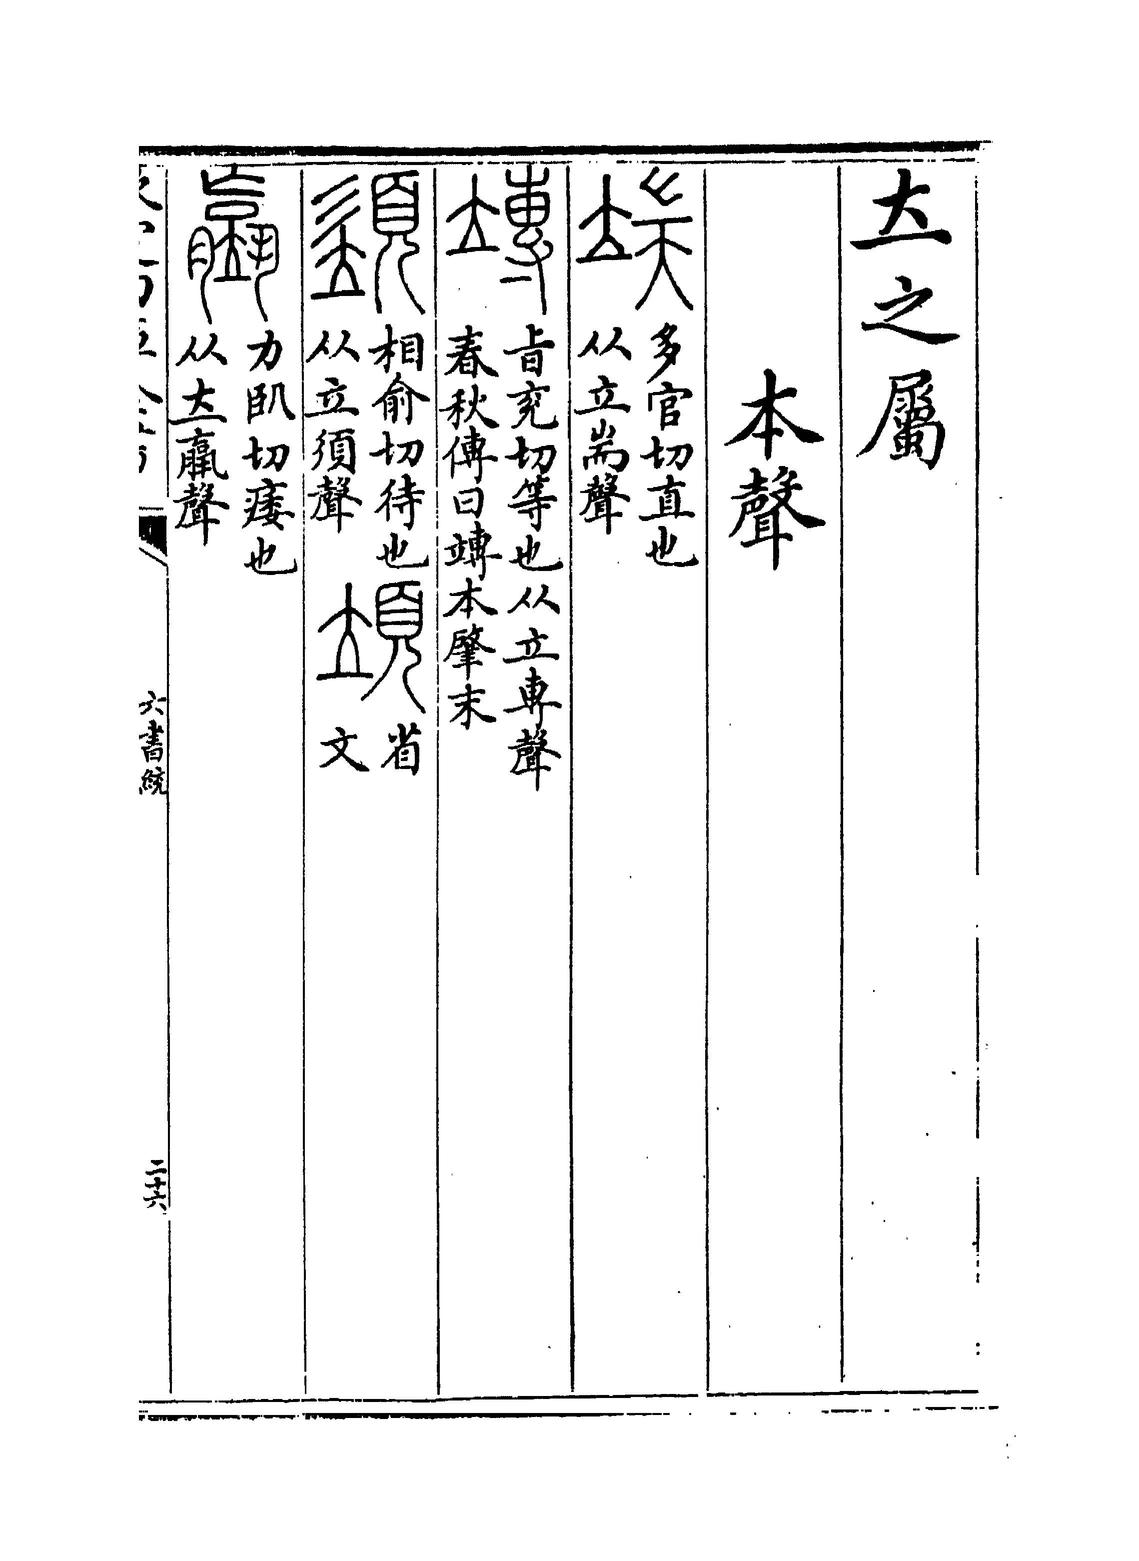 𡗓之屬
本聲
端 多官切直也从立耑聲
竱 旨兖切等也从立専聲春秋傳曰竱本肇末
䇓 相俞切待也从立須聲 䇕 省文
力卧切痿也从𡗓𦝠聲
六書統
二十六